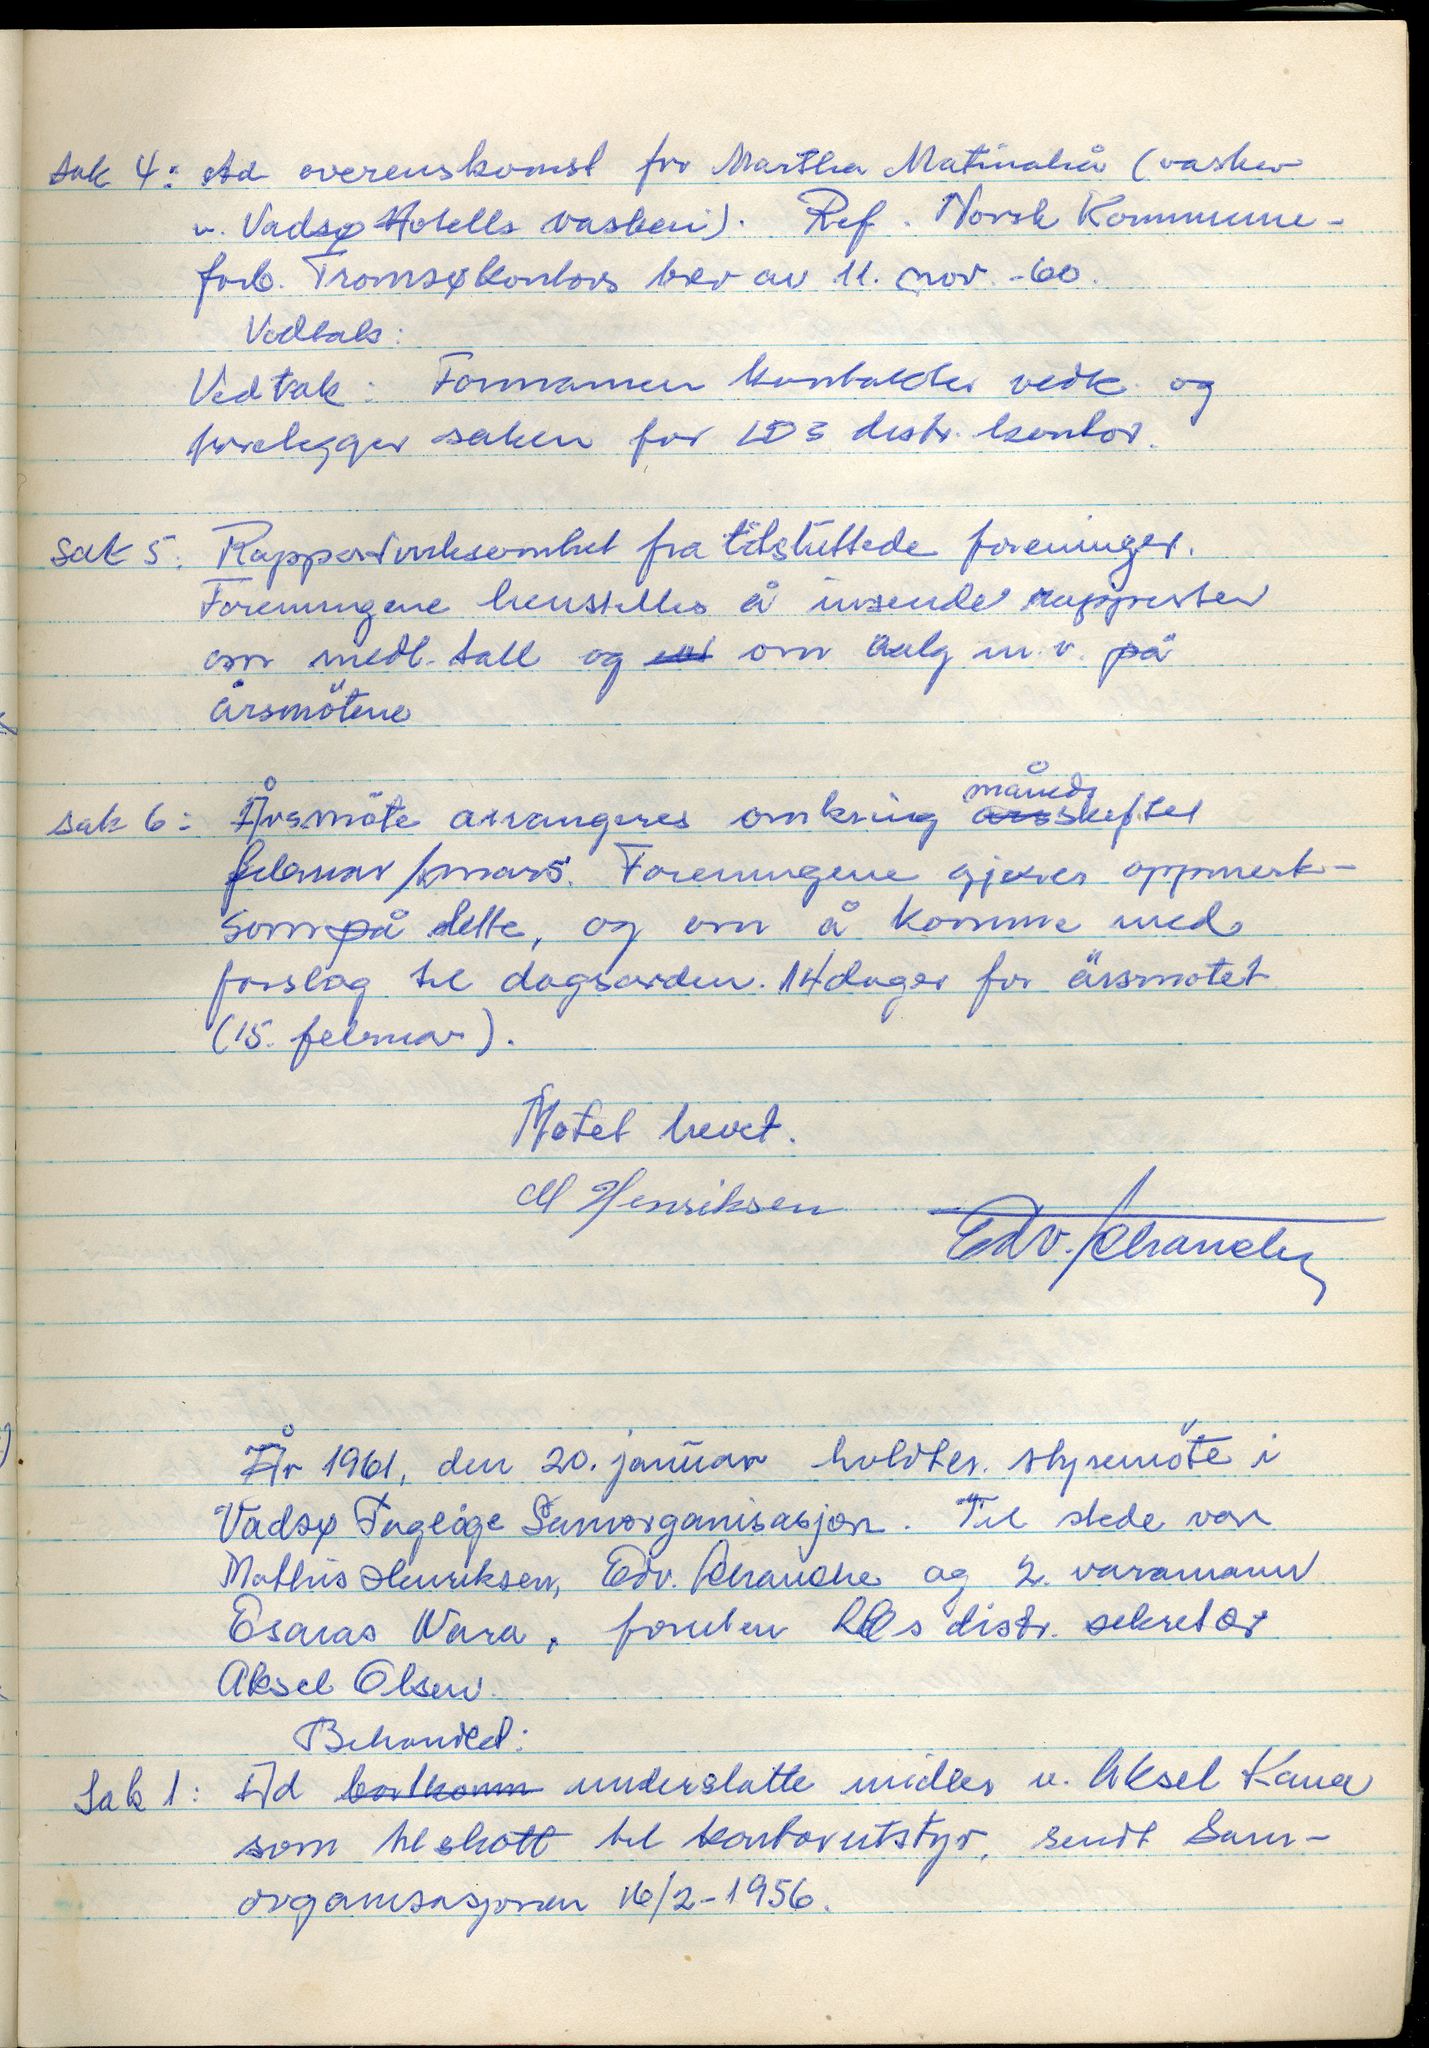 sak 4: Ad overenskomst for Martha Matinalå (vasker
v. Vadsø Hotells vaskeri). Ref. Norsk Kommune-
forb. Tromsøkontors brev av 11. nov. -60.
Vedtak:
Vedtak: Formannen kontakter vedk. og
forelegger saken for LOs distr. kontor.
sak 5: Rapportvirksomhet fra tilsluttede foreninger.
Foreningene henstilles å innsende rapporter
om medl. tall og om valg m.v. på
årsmötene
sak 6: Årsmöte arrangeres omkring måneds
årsskiftet
februar/mars. Foreningene gjøres oppmerk-
som på dette, og om å komme med
forslag til dagsorden 14 dager for årsmotet
(15. februar).
Motet hevet.
M Henriksen
Edv. Schanche
År 1961, den 20. januar holdtes styremöte i
Vadsø Faglige Samorganisasjon. Til stede var
Mathis Henriksen, Edv. Schanche og 2. varamann
Esaias Vara, foruten LOs distr. sekretær
Aksel Olsen.
Behandlet:
Sak 1: Ad bortkomm underslåtte midler v. Aksel Kana
som tilskott til kontorutstyr, sendt Sam-
organisasjonen 16/2-1956.